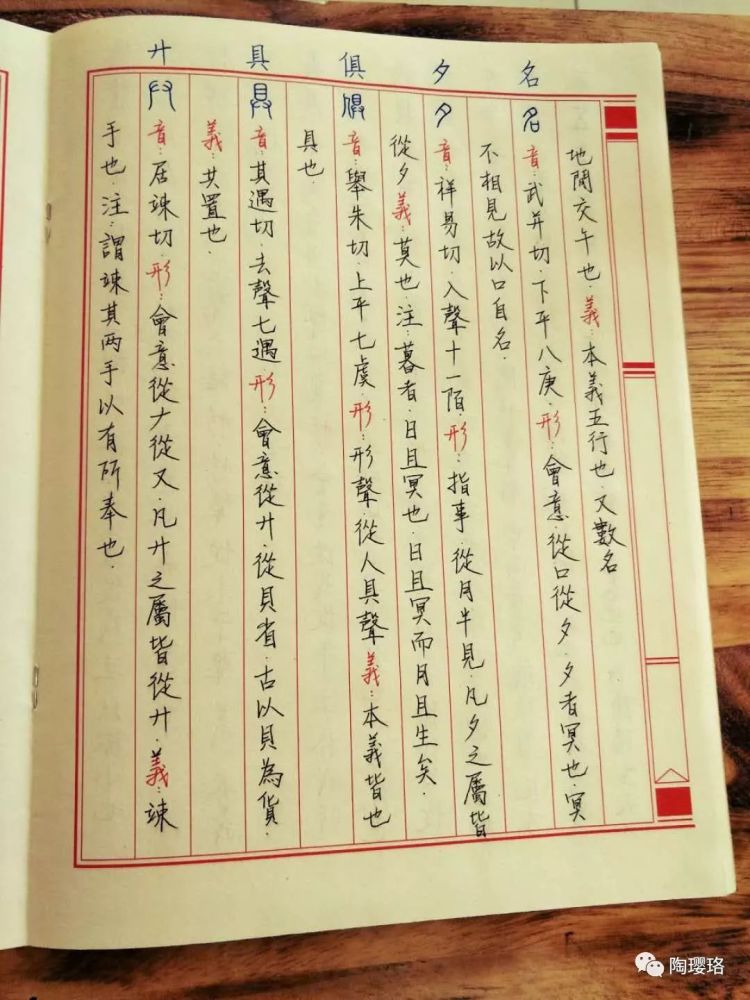 名
夕
俱
具
廾
地間交午也．義：本義五行也．又數名
名音：武并切．下平八庚．形：會意．從口從夕．夕者冥也．冥
不相見故以口自名．
夕音：祥易切．入聲十一陌．形：指事．從月半見．凡夕之屬皆
從夕義：莫也．注：暮者．日且冥也．日且冥而月且生矣．
俱音：舉朱切．上平七虞．形：形聲．從人具聲．義：本義皆也
具也．
具音：其遇切．去聲七遇形：會意從廾．從貝省．古以貝為貨．
義：共置也．
廾音：居竦切．形：會意從𠂇從又．凡廾之屬皆從廾．義：竦
手也．注：謂竦其两手以有所奉也．
陶璎珞